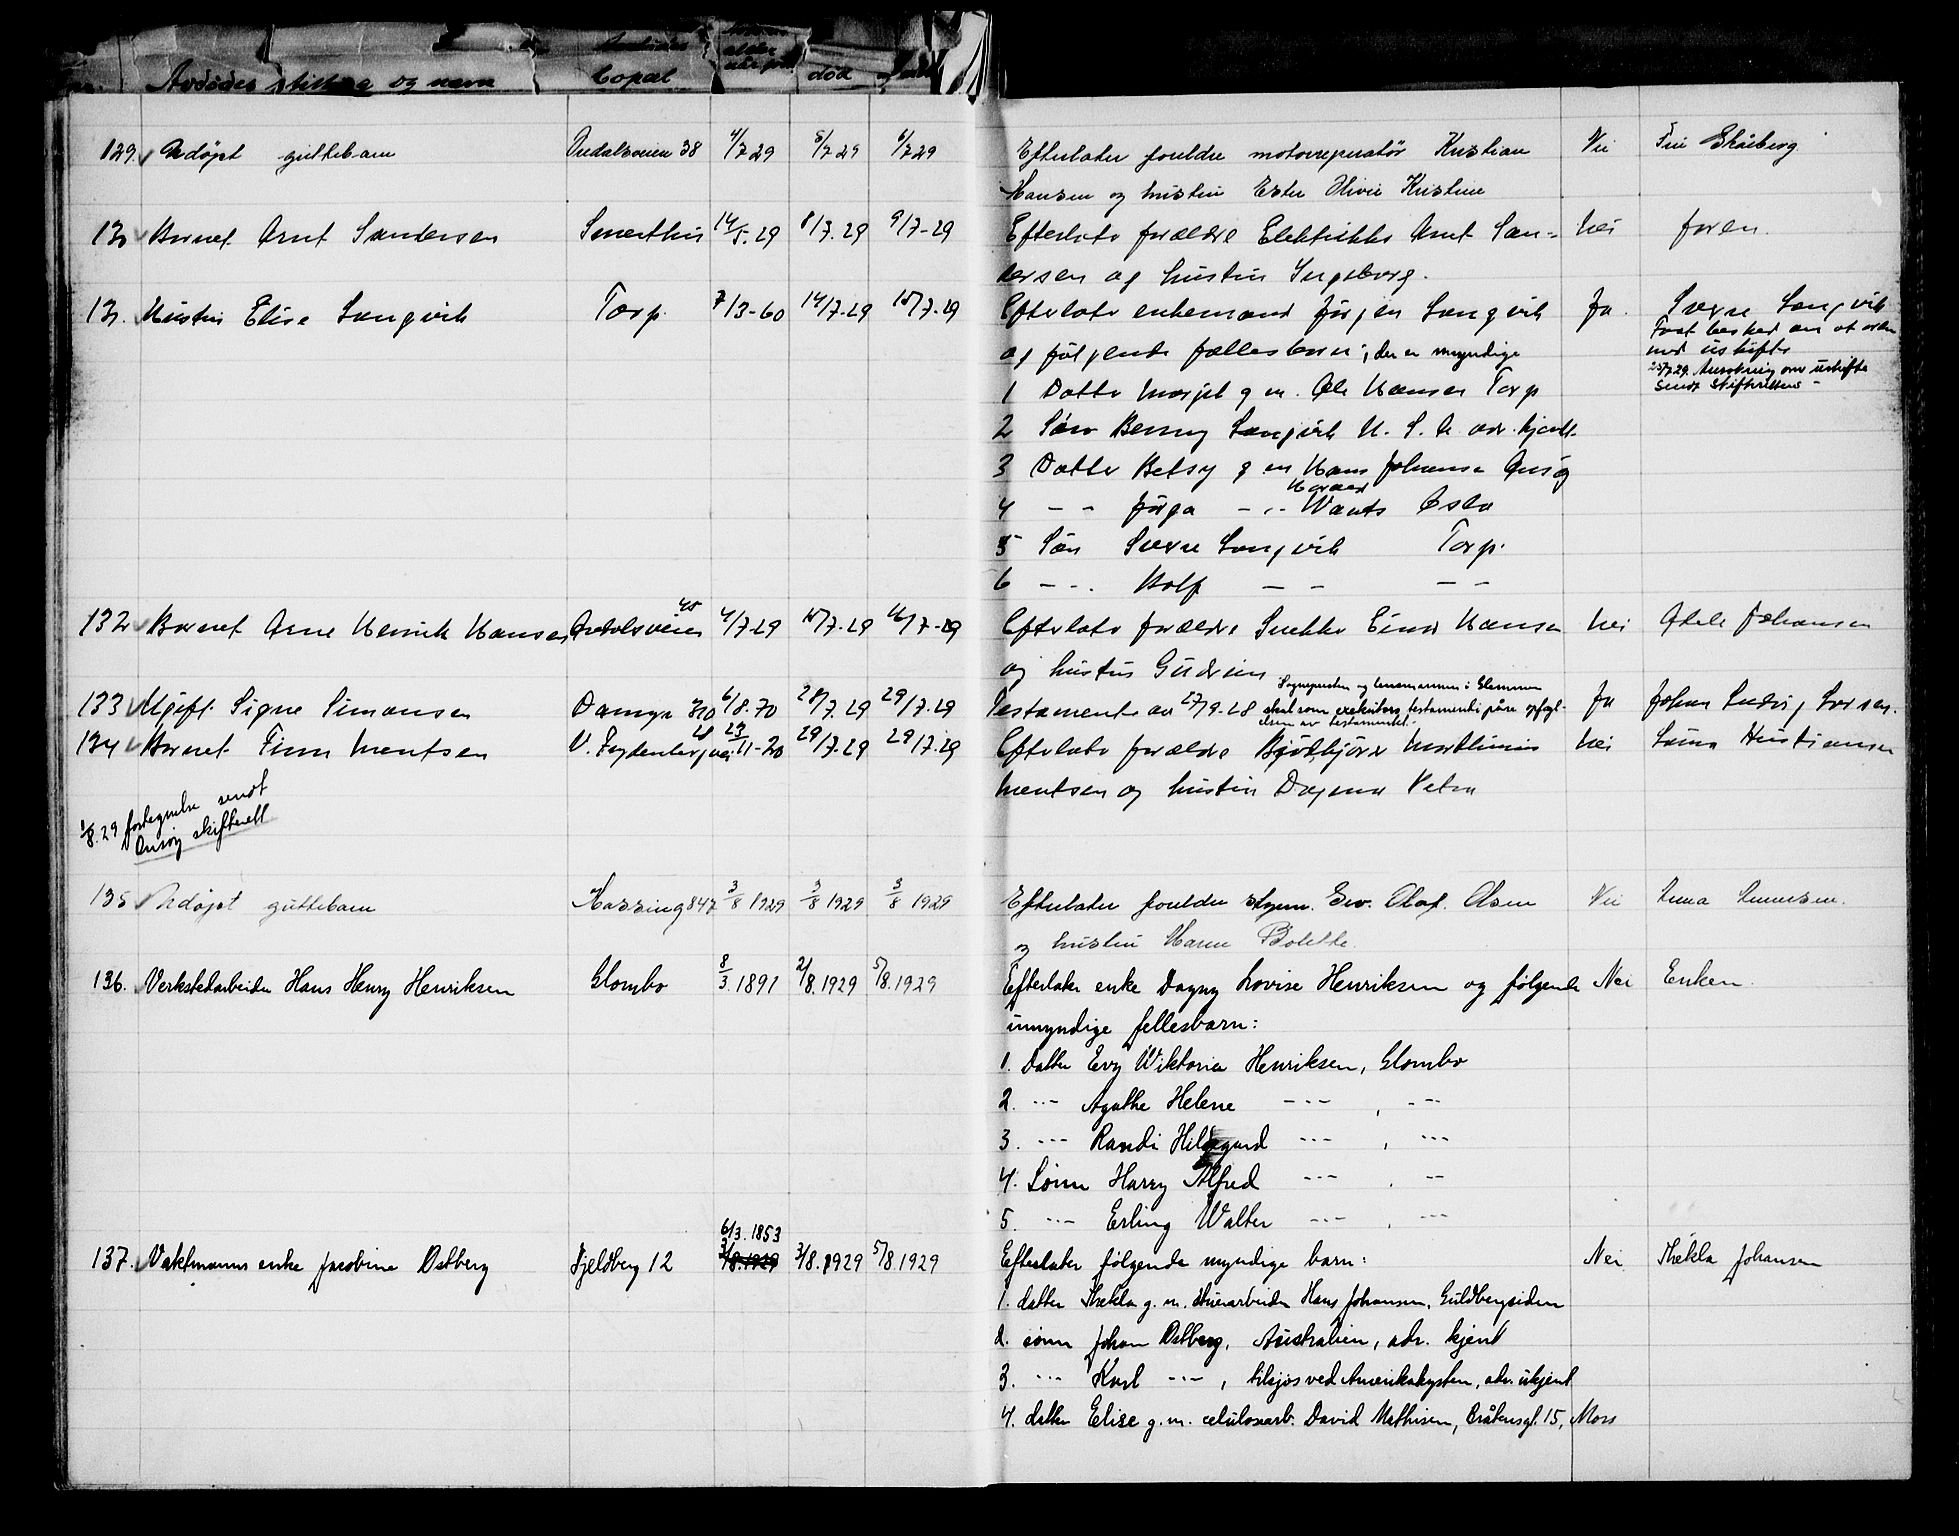 Avdødes stilling og navn Bopæl død
129 Udøpt guttebarn Ordalsveien 38 4/7 29 5/7 29 6/7 29 Efterlater foreldre motorreparatør Kristian Nei Fru Skåeberg
Hansen og hustru Ester Olivie Kristine
130 Barnet Arnt Sandersen Smerthus 14/5.29 8/7.29 9/7-29 Efterlate forældre Elektriker Arnt San- Nei faren.
dersen og hustru Ingeborg.
131. Hustru Elise Langvik Torp. 7/3-60 14/7-29 15/7-29 Efterlate enkemand Jørgen Langvik Ja. Sverre Langvik
og følgende fællesbarn, der er myndige
Faat besked om at ordne
med uskifte
25/7.29. Ansøkning om uskifte
sendt skifteretten -
1 Datter Margit g. m. Ole Hansen Torp
2 Søn Benny Langvik U. S. A. adr. kjendt.
3 Datter Betsy g m Hans Johansen Onsø
4 - - Jørga - - Wants Oslo
5 Søn Sverre Langvik Torp.
6 - - . Rolf - - - -
132 Barnet Arne Henrik Hansen Ordalsveien 45 4/7-29 15/7-29 16/7-29 Efterlate forældre Snekker Einar Hansen Nei Adele Johansen
og hustru Gudrun
133 Ugift. Signe Simonsen Damyr 30 6/8.70 28/7.29 29/7.29 Testamente av 27/9-28 Sognepresten og lensmannen i Glemmen skal som exekutores testamenti påse opfyl- Ja Johan Ludvig Larsen.
delsen av testamentet.
134 Barnet Finn Mentsen V. Frydenbergvei 28 23/11-20 29/7.29 29/7.29 Efterlate forældre Martinius Nei Laura Kristiansen
Mentsen og hustru Dagmar Petra
1/8.29 fortegnelse sendt
Onsøy skifterett
135 Udøpt guttebarn Hassing 847 3/8 1929 3/8 1929 3/8 1929 Efterlater foreldre styrm. Olaf Olsen Nei Anna
og hustru Maren Bolette.
136. Verkstedarbeider Hans Henry Henriksen Glombo 8/3.1891 2/8.1929 5/8.1929 Efterlater enke Dagny Lovise Henriksen og følgende Nei Enken.
umyndige fellesbarn:
1. Datter Evy Wiktoria Henriksen, Glombo
2. --- Agathe Helene --- , ---
3. --- Randi Hildegard --- , ---
4. Sønn Harry Alfred --- . --
5. --- Erling Walter --- . ---
6/3.1853
137. Vaktmanns enke Jacobine Østberg Fjeldberg 12 3/8.1929 3/8.1929 5/8 1929 Efterlater følgende myndige barn: Nei Thekla Johansen
1. datter Thekla g. m. Murarbeider Hans Johansen, Guldbergsiden
2. sønn Johan Østberg, Australien, adr. kjent
3. --- Karl --- , tilsjøs ved Amerikakysten, adr. ukjent
4. datter Elise g. m. celulosearb. David Mathisen, Bråtengt. 15, Moss